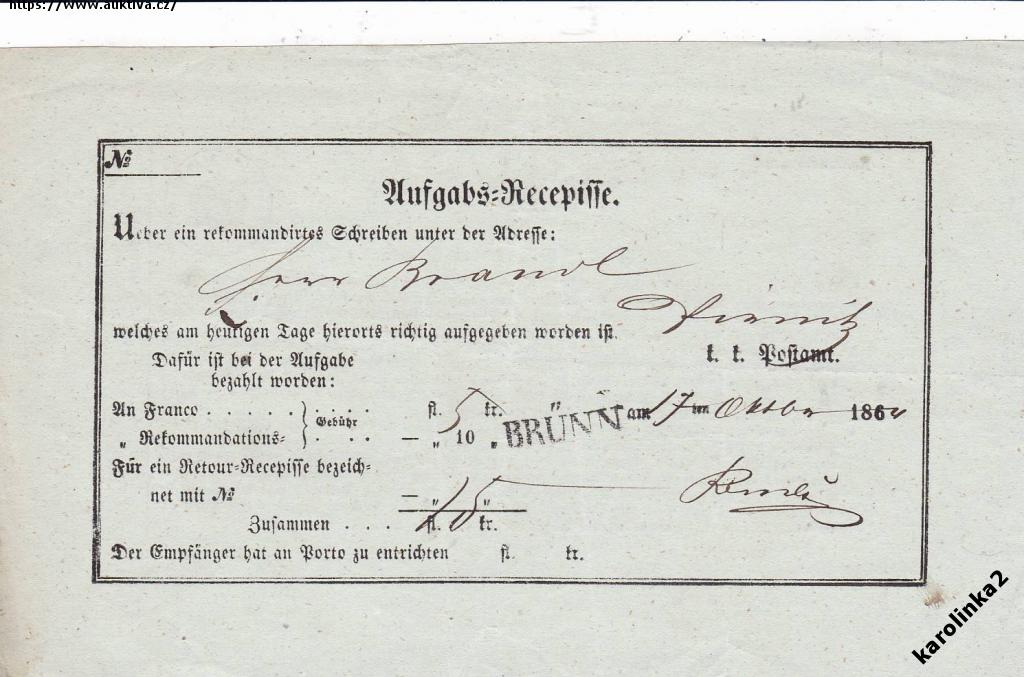 https://www.auktiva.cz/
№
Aufgabs-Recepisse.
Ueber ein rekommandirtes Schreiben unter der Adresse:
Herr Brandl
welches am heutigen Tage hierorts richtig aufgegeben worden ist.
k. k. Postamt.
Dafür ist bei der Aufgabe
bezahlt worden:
An Franco . . . . . . . . . fl. 5 kr. " am 17 im Oktbr 186
„ Rekommandations= Gebühr . . . — „ 10 „ BRÜNN
Für ein Retour-Recepisse bezeich=
net mit № — „ „
Zusammen . . . fl. 15 kr.
Der Empfänger hat an Porto zu entrichten fl. kr.
karolinka2